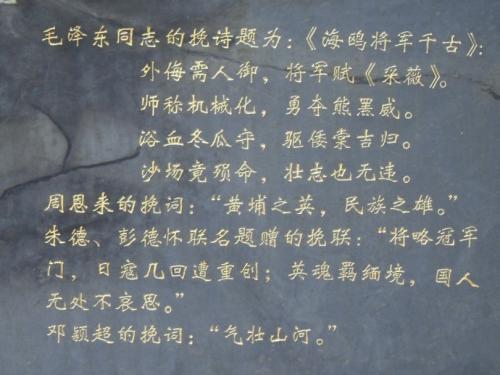 毛泽东同志的挽诗题为：《海鸥将军千古》：
外侮需人御，将军赋《采薇》。
师称机械化，勇夺熊罴威。
浴血冬瓜守，驱倭棠吉归。
沙场竟殒命，壮志也无违。
周恩来的挽词：“黄埔之英，民族之雄。”
朱德、彭德怀联名题赠的挽联：“将略冠军
门，日寇几回遭重创；英魂羁缅境，国人
无处不哀思。”
邓颖超的挽词：“气壮山河。”